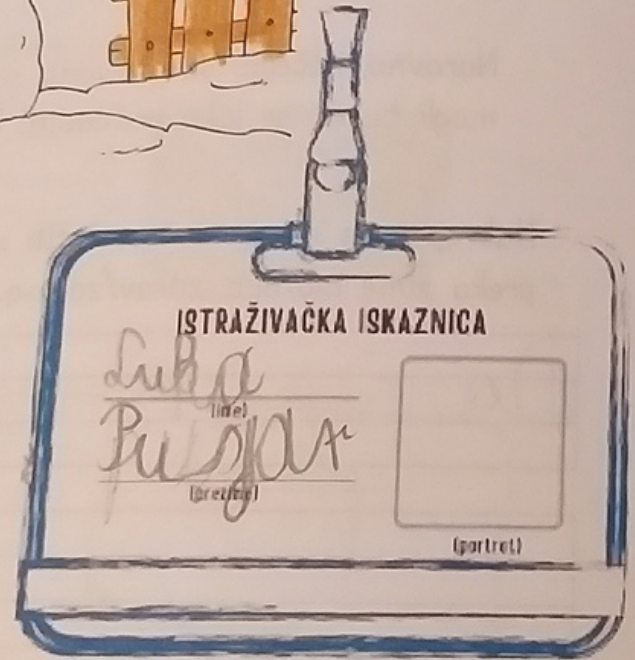 ISTRAŽIVAČKA ISKAZNICA
Luka
(ime)
(prezime)
(portret)